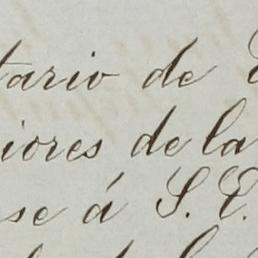 tario de
iores de la
se á S. E.